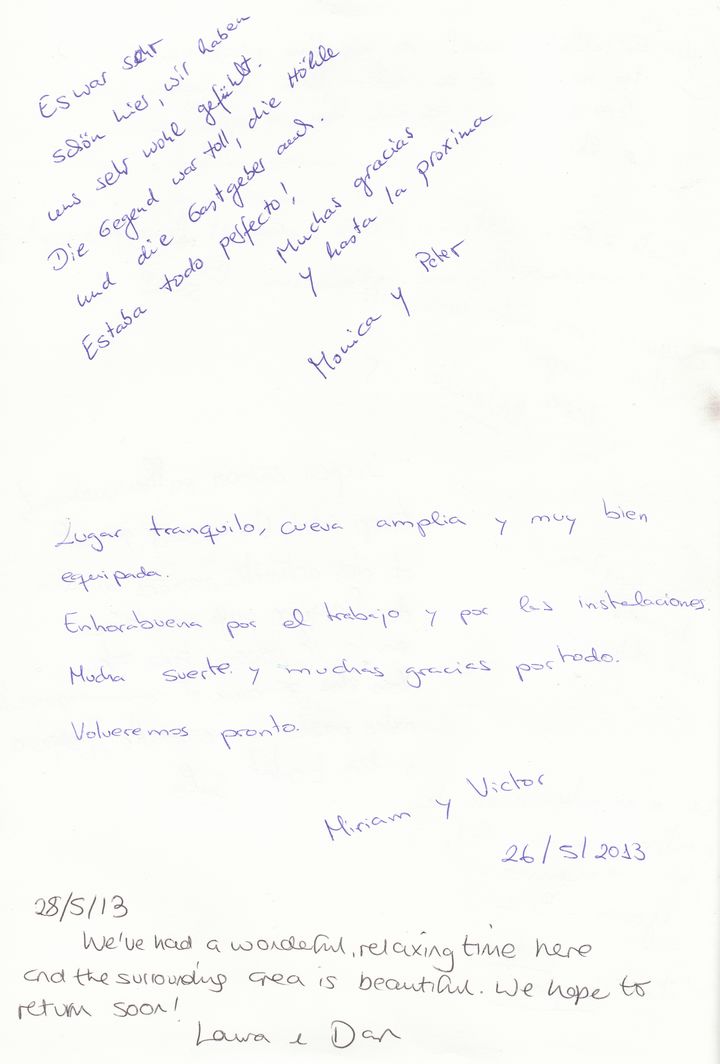 Es war sehr
schön hier, wir haben
uns sehr wohl gefühlt.
Die Gegend war toll, die Höhle
und die Gastgeber auch.
Estaba todo perfecto!
Muchas gracias
y hasta la proxima
Monica y Peter
Lugar tranquilo, cueva amplia y muy bien
equipada.
Enhorabuena por el trabajo y por las instalaciones.
Mucha suerte y muchas gracias por todo.
Volveremos pronto.
Miriam y Victor
26/5/2013
28/5/13
We've had a wonderful, relaxing time here
and the surrounding area is beautiful. We hope to
return soon!
Laura e Dan